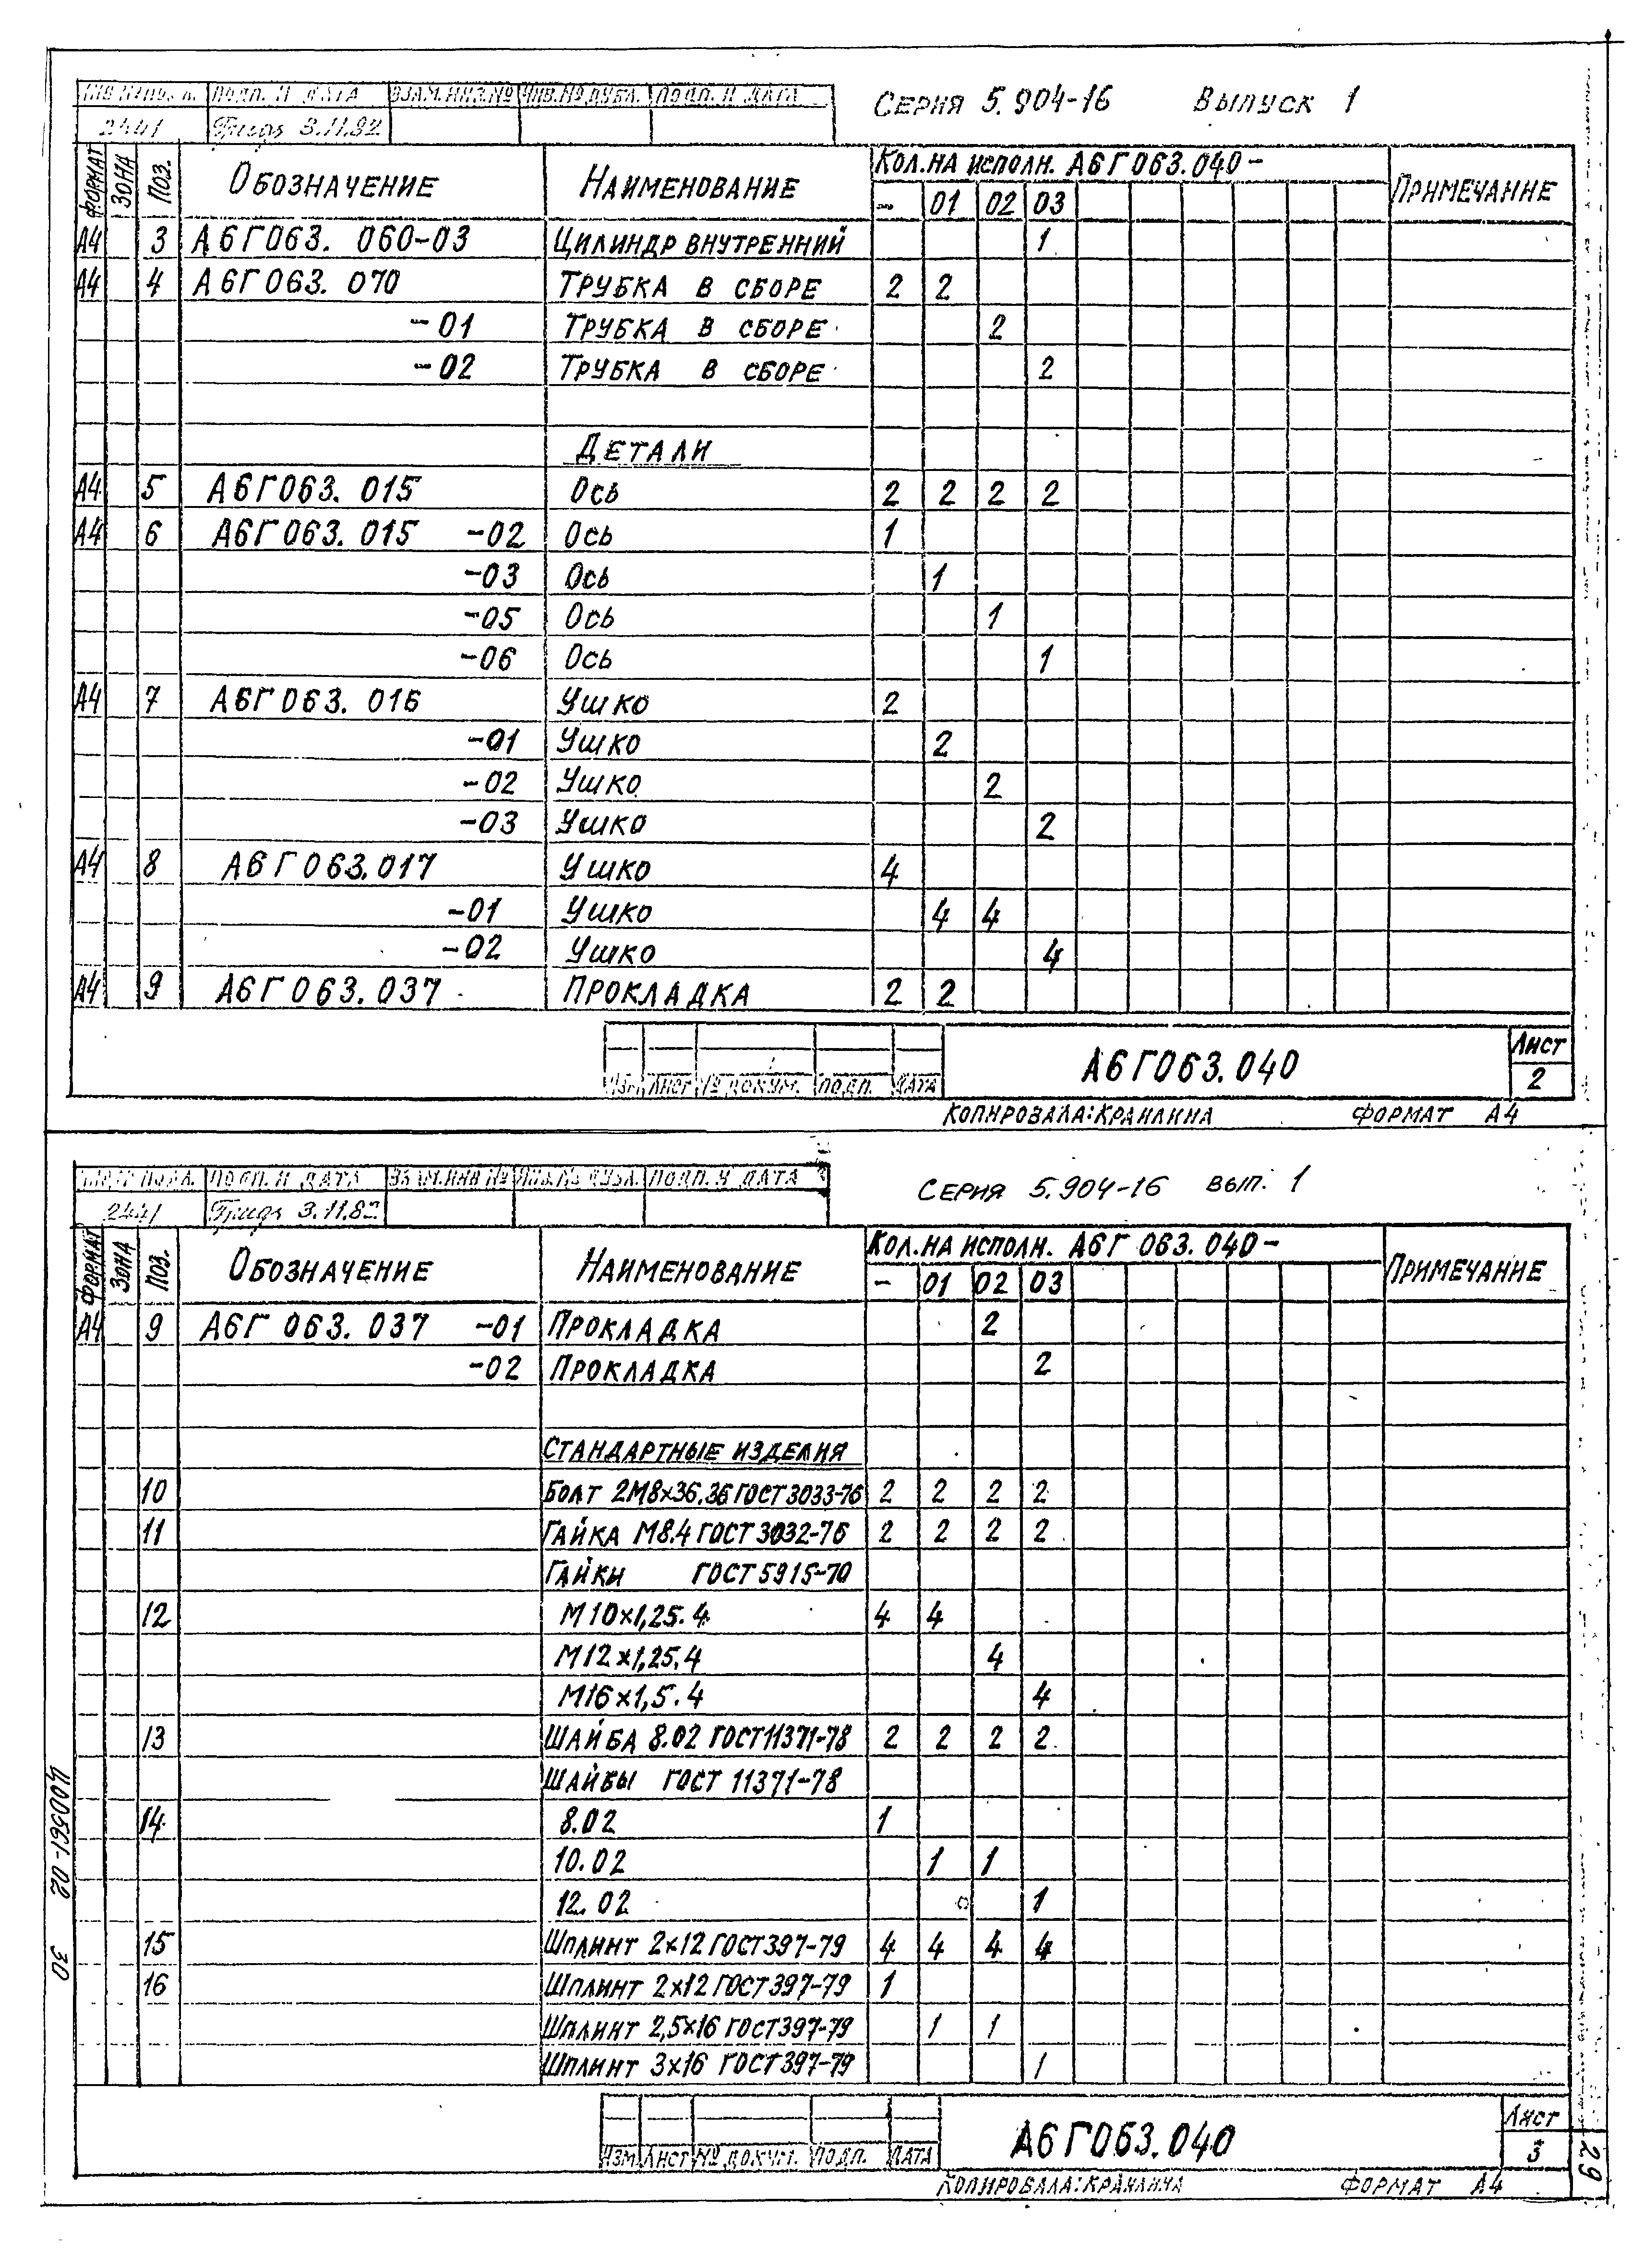 ИНВ.№ ПОДЛ. ПОДП. И ДАТА ВЗАМ.ИНВ.№ ИНВ.№ ДУБЛ. ПОДП. И ДАТА СЕРИЯ 5.904-16 ВЫПУСК 1
2441 3.11.82
ФОРМАТ ЗОНА ПОЗ. ОБОЗНАЧЕНИЕ НАИМЕНОВАНИЕ КОЛ.НА ИСПОЛН. А6Г063.040- ПРИМЕЧАНИЕ
- 01 02 03
А4 3 А6Г063. 060-03 ЦИЛИНДР ВНУТРЕННИЙ 1
А4 4 А6Г063. 070 ТРУБКА В СБОРЕ 2 2
-01 ТРУБКА В СБОРЕ 2
-02 ТРУБКА В СБОРЕ 2
ДЕТАЛИ
А4 5 А6Г063. 015 ОСЬ 2 2 2 2
А4 6 А6Г063. 015 -02 ОСЬ 1
-03 ОСЬ 1
-05 ОСЬ 1
-06 ОСЬ 1
А4 7 А6Г063. 016 УШКО 2
-01 УШКО 2
-02 УШКО 2
-03 УШКО 2
А4 8 А6Г063.017 УШКО 4
-01 УШКО 4 4
-02 УШКО 4
А4 9 А6Г063.037 ПРОКЛАДКА 2 2
ИЗМ. ЛИСТ № ДОКУМ. ПОДП. ДАТА А6Г063.040 ЛИСТ 2
КОПИРОВАЛА: КРАИЛИНА ФОРМАТ А4
ИНВ.№ ПОДЛ. ПОДП. И ДАТА ВЗАМ.ИНВ № ИНВ.№ ДУБЛ. ПОДП. И ДАТА СЕРИЯ 5.904-16 ВЫП. 1
2441 3.11.82
ФОРМАТ ЗОНА ПОЗ. ОБОЗНАЧЕНИЕ НАИМЕНОВАНИЕ КОЛ.НА ИСПОЛН. А6Г 063.040- ПРИМЕЧАНИЕ
- 01 02 03
А4 9 А6Г 063.037 -01 ПРОКЛАДКА 2
-02 ПРОКЛАДКА 2
СТАНДАРТНЫЕ ИЗДЕЛИЯ
10 БОЛТ 2М8×36.36 ГОСТ 3033-76 2 2 2 2
11 ГАЙКА М8.4 ГОСТ 3032-76 2 2 2 2
ГАЙКИ ГОСТ 5915-70
12 М10×1,25.4 4 4
М12×1,25.4 4
М16×1,5.4 4
13 ШАЙБА 8.02 ГОСТ 11371-78 2 2 2 2
ШАЙБЫ ГОСТ 11371-78
14 8.02 1
10.02 1 1
12.02 1
15 ШПЛИНТ 2×12 ГОСТ 397-79 4 4 4 4
16 ШПЛИНТ 2×12 ГОСТ 397-79 1
ШПЛИНТ 2,5×16 ГОСТ 397-79 1 1
ШПЛИНТ 3×16 ГОСТ 397-79 1
ИЗМ. ЛИСТ № ДОКУМ. ПОДП. ДАТА А6Г063.040 ЛИСТ 3
КОПИРОВАЛА: КРАИЛИНА ФОРМАТ А4
400561-02 30
29